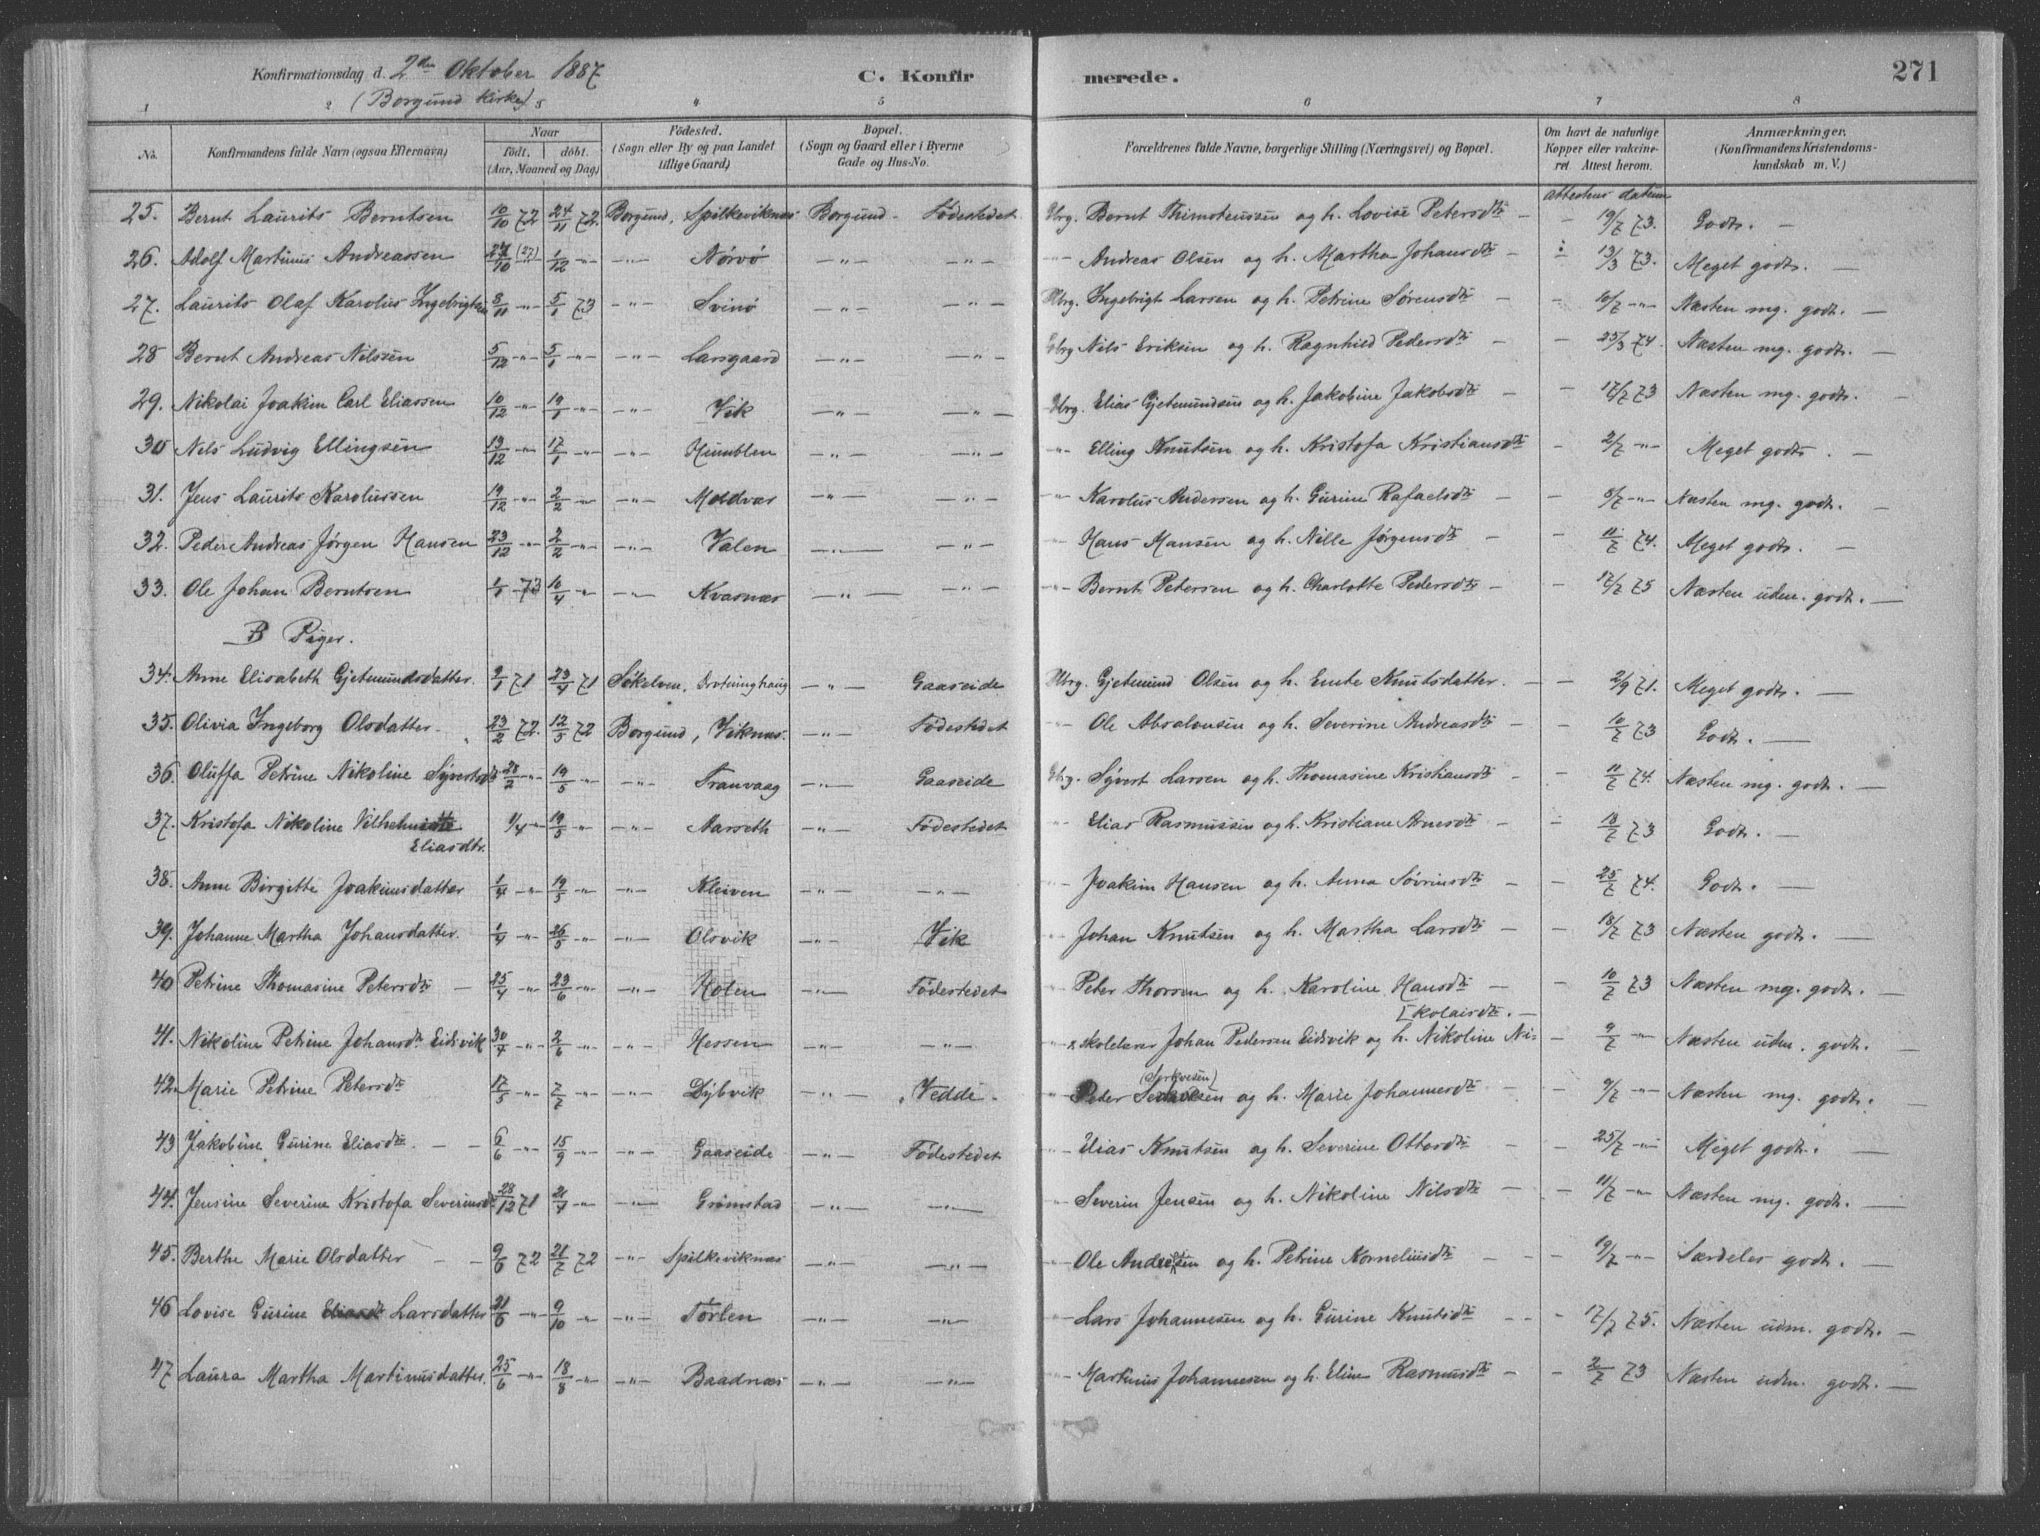 Konfirmationsdag d. 2den Oktober 1887 C. Konfirmerede. 271
(Borgund Kirke)
1 2 3 4 5 6 7 8
No. Konfirmandens fulde Navn (ogsaa Efternavn) Naar født, døbt. (Aar, Maaned og Dag) Fødested. (Sogn eller By og paa Landet tillige Gaard) Bopæl. (Sogn og Gaard eller i Byerne Gade og Hus-No. Forældrenes fulde Navne, borgerlige Stilling (Næringsvei) og Bopæl. Om havt de naturlige Kopper eller vakcineret. Attest herom. Anmærkninger. (Konfirmandens Kristendomskundskab m. V.)
attestens datum
25. Bernt Laurits Berntsen 10/10 72 24/11 72. Borgund, Spilkeviknæs Borgund - Fødestedet Gbrg. Bernt Thimoteussen og h. Lovise Petersdtr - - 19/7 73. Godt. -
26. Adolf Martinus Andreassen 27/10 (27) 1/12 -"- -"- Nørvø -"- -"- -"- Andreas Olsen og h. Martha Johansdtr - 13/3 73. Meget godt. -
27. Laurits Olaf Karolus Ingebrigtsen 8/11 -"- 5/1 73 -"- Svinø -"- -"- Gbrg. Ingebrigt Larsen og h. Petrine Sørensdtr - - 10/7 -"- Næsten mg. godt. -
28 Bernt Andreas Nilssen 5/12 -"- 5/1 -"- -"- Larsgaard -"- -"- Gbrg Nils Eriksen og h. Ragnhild Pedersdtr - - 25/3 74. Næsten mg. godt. -
29. Nikolai Joakim Carl Eliassen 10/12 -"- 19/1 -"- -"- Vik -"- -"- Gbrg. Elias Gjetmundsen og h. Jakobine Jakobsdtr - - 17/7 73 Næsten mg. godt. -
30 Nils Ludvig Ellingsen 13/12 -"- 17/1 -"- -"- Humblen -"- -"- -"- Elling Knutsen og h. Kristofa Kristiansdtr - 2/7 -"- Meget godt. -
31. Jens Laurits Karolussen 19/12 -"- 2/2 -"- -"- Moldvær -"- -"- -"- Karolus Andersen og h. Gurine Rafaelsdtr - - 8/7 -"- Næsten mg. godt. -
32. Peder Andreas Jørgen Hansen 23/12 -"- 2/2 -"- -"- Valen -"- -"- -"- Hans Hansen og h. Nille Jørgensdtr - - 11/7 74. Meget godt. -
33. Ole Johan Berntsen 1/1 73 10/4 -"- -"- Kvasnæs -"- -"- -"- Bernt Petersen og h. Charlotte Pedersdtr - - 17/7 75 Næsten udm. godt. -
B Piger.
34. Anne Elisabeth Gjetmundsdatter. 2/1 71 23/4 71 Søkelven, Drotninghaug -"- Gaaseide Gbrg. Gjetmund Olsen og h. Ente Knutsdatter. - - 2/9 71. Meget godt. -
35. Olivia Ingeborg Olsdatter. 23/2 72. 12/5 72 Borgund, Viknæs. -"- Fødestedet -"- Ole Absalonsen og h. Severine Andreasdtr - - 10/7 73 Godt. -
36. Oluffa Petrine Nikoline Syvertsdtr 28/2 -"- 19/5 -"- -"- Tranvaag -"- Gaaseide Gbrg. Syvert Larsen og h. Thomasine Kristiansdtr - - 11/7 74. Næsten mg. godt. -
37. Kristofa Nikoline Vilhelmine 1/4 -"- 19/5 -"- -"- Aarseth -"- Fødestedet -"- Elias Rasmussen og h. Kristiane Arnesdtr - - 18/7 73 Godt. -
Eliasdtr.
38. Anne Birgitte Joakimsdatter 1/4 -"- 19/5 -"- -"- Kleiven -"- -"- -"- Joakim Hansen og h. Anna Søvrinsdtr - - 25/7 74. Godt. -
39. Johanne Martha Johansdatter. 1/4 -"- 26/5 -"- -"- Olsvik -"- Vik -"- Johan Knutsen og h. Martha Larsdtr - - 18/7 73 Næsten godt. -
40 Petrine Thomasine Petersdtr - 25/4 -"- 23/6 -"- -"- Holen -"- Fødestedet -"- Peter Thorsen og h. Karoline Hansdtr - - 10/7 73 Næsten mg. godt. -
[kolaisdtr. -
41. Nikoline Petrine Johansdtr Eidsvik 30/4 -"- 2/6 -"- -"- Hessen -"- -"- -"- Skolelærer Johan Pedersen Eidsvik og h. Nikoline Ni- - 9/7 -"- Næsten udm. godt. -
42. Marie Petrine Petersdtr 17/5 -"- 7/7 -"- -"- Dybvik -"- Vedde. -"- Peder (Serkvesen) og h. Marie Johannesdtr - - 9/7 -"- Næsten mg. godt. -
43 Jakobine Gurine Eliasdtr - - 6/6 -"- 15/9 -"- -"- Gaaseide -"- Fødestedet -"- Elias Knutsen og h. Severine Ottosdtr - - 25/7 -"- Meget godt. -
44. Jensine Severine Kristofa Severinsdtr 28/12 71 21/4 -"- -"- Grømstad -"- -"- -"- Severin Jensen og h. Nikoline Nilsdtr - - 11/7 -"- Næsten mg. godt. -
45. Berthe Marie Olsdatter - - 9/6 72 21/7 72 -"- Spilkeviknæs -"- -"- -"- Ole Andersen og h. Petrine Korneliusdtr - - - 19/7 -"- Særdeles godt. -
46 Lovise Gurine Larsdatter 21/6 -"- 9/10 -"- -"- Tørlen -"- -"- -"- Lars Johannesen og h. Gurine Knutsdtr - - - 17/7 75. Næsten udm. godt. -
47 Laura Martha Martinusdatter. 25/6 -"- 18/8 -"- -"- Baadnæs -"- -"- -"- Martinus Johannesen og h. Eline Rasmusdtr - - 2/7 73 Næsten udm. godt. -